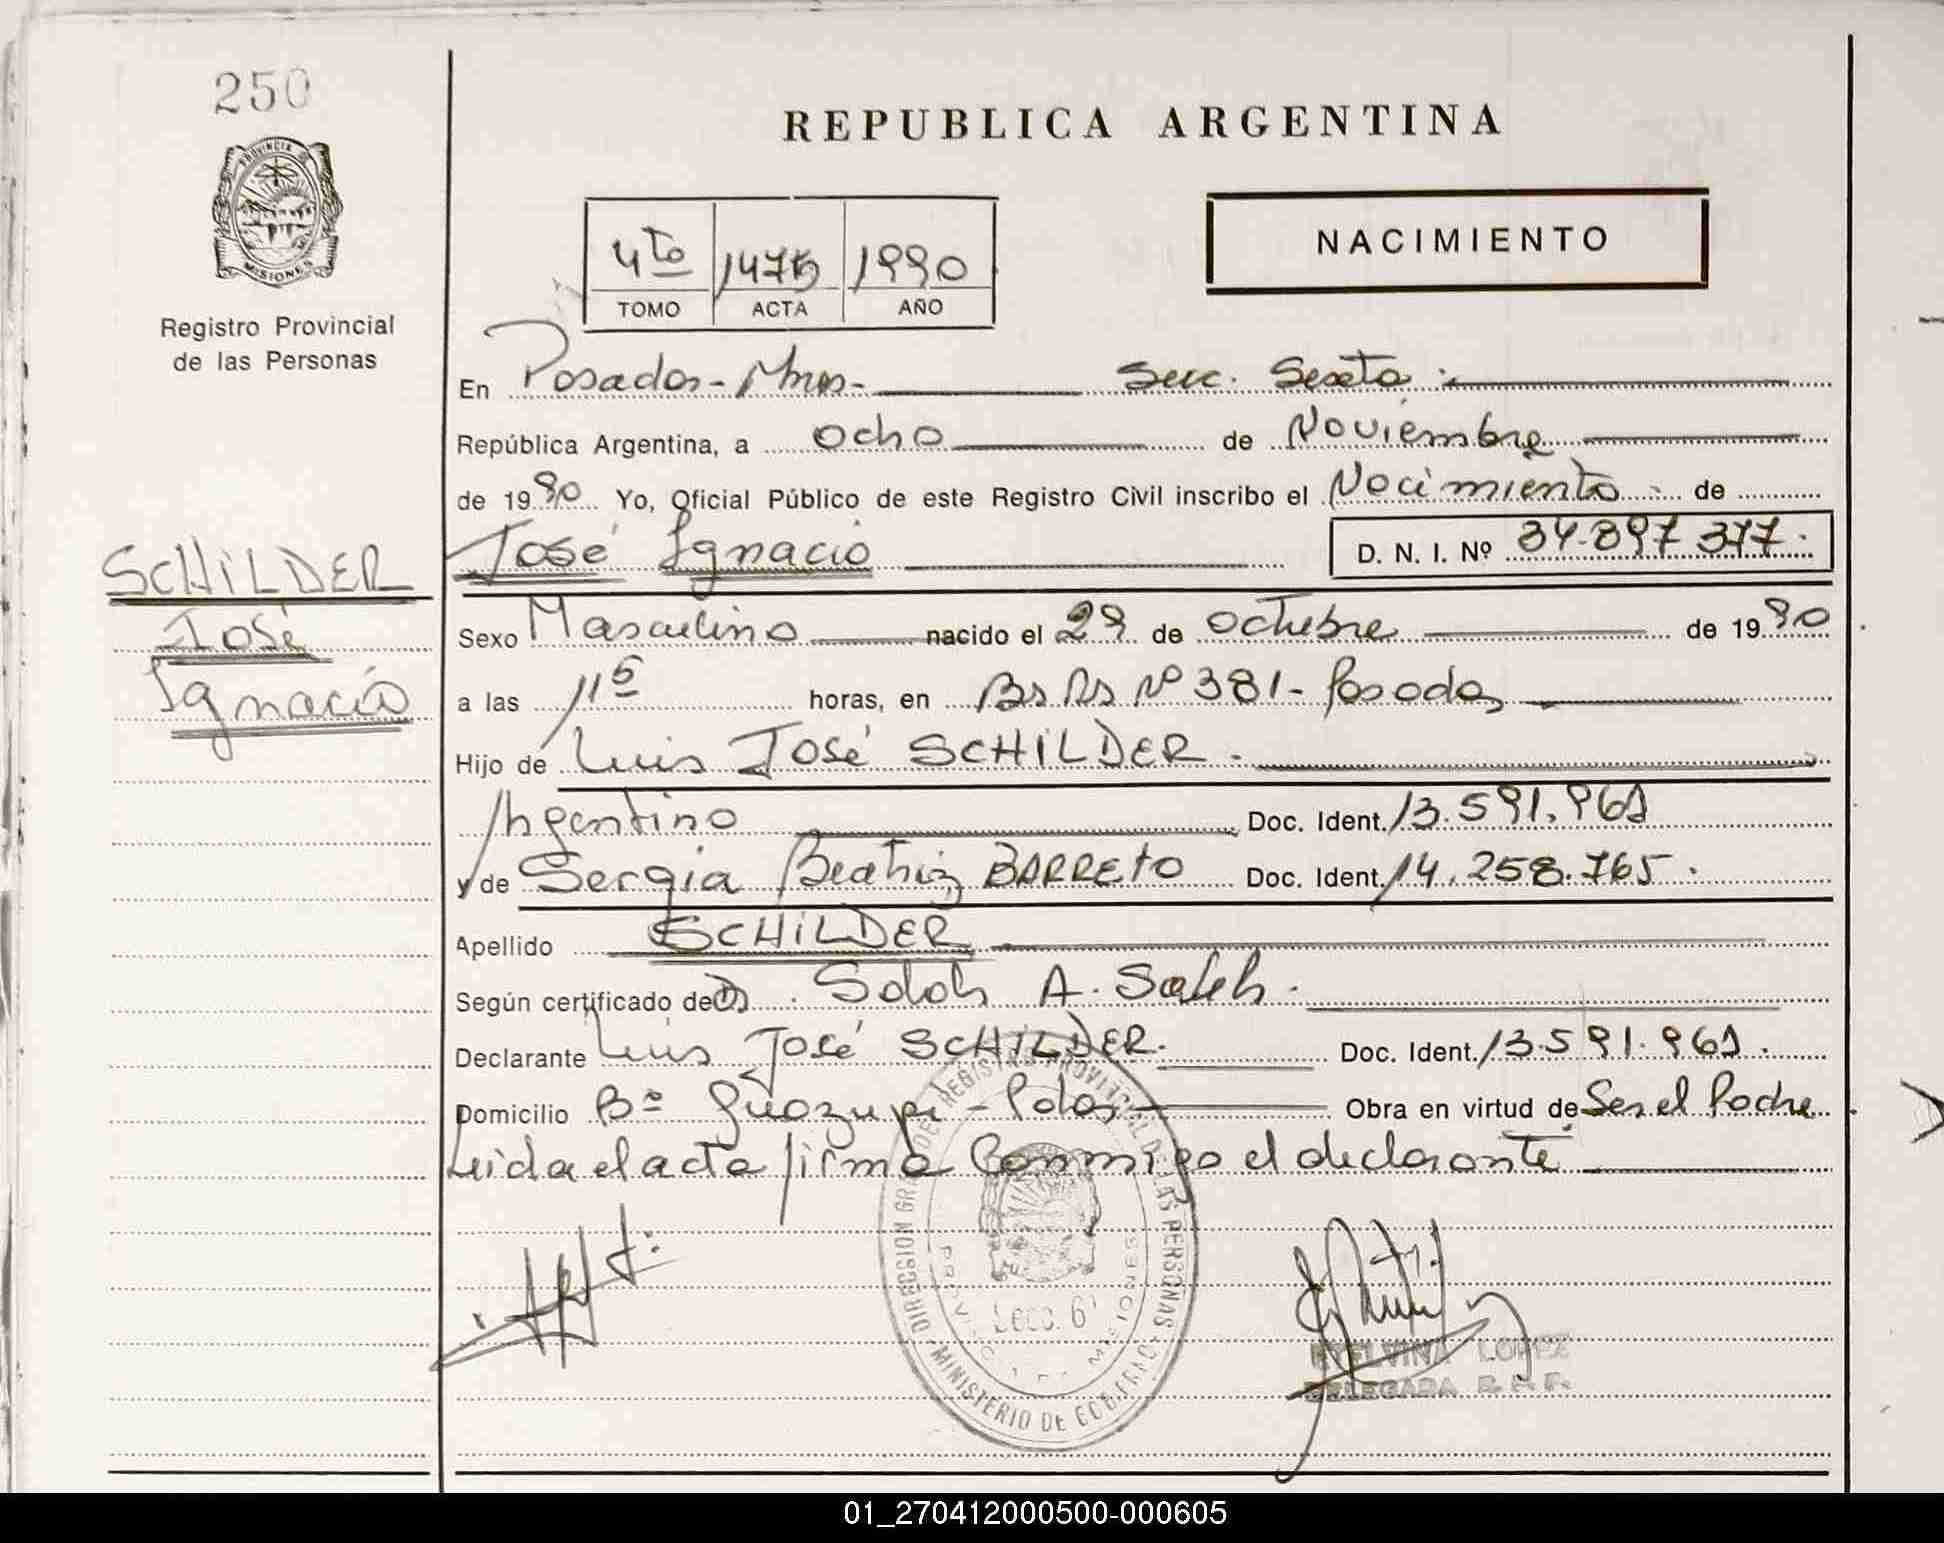 250
REPUBLICA ARGENTINA
PROVINCIA DE
MISIONES
Registro Provincial
de las Personas
4to 1475 1990
TOMO ACTA AÑO
NACIMIENTO
En Posadas - Mnes - Secc. Sexta
República Argentina, a ocho de Noviembre
de 1990 Yo, Oficial Público de este Registro Civil inscribo el Nacimiento de
José Ignacio D. N. I. Nº 34.897.377.
SCHILDER
José
Ignacio
Sexo Masculino nacido el 29 de octubre de 1990
a las 11 5 horas, en Bs As Nº 381 - Posadas
Hijo de Luis José SCHILDER.
Argentino Doc. Ident. 13.591.961
y de Sergia Beatriz BARRETO Doc. Ident. 14.258.765.
Apellido SCHILDER
Según certificado de A. Saleh.
Declarante Luis José SCHILDER. Doc. Ident. 13.591.961.
Domicilio Bº - Pdas Obra en virtud de Ser el Padre
Leida el acta firma Conmigo el declarante
DIRECCION GRAL DEL REGISTRO PROVINCIAL DE LAS PERSONAS
MINISTERIO DE GOB.
PROVINCIA DE MISIONES
Secc. 6ª
ETELVINA LOPEZ
DELEGADA
01_270412000500-000605